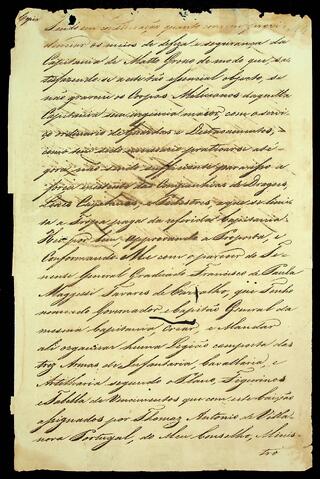 Copia
Tendo em consideração quanto convem providenciar os meios de defeza e segurança da
Capitania de Matto Grosso de modo que, sa-
tisfazendo-se a este tão essencial objecto, se
não gravem os Corpos Milicianos daquella
Capitania sem urgencia maior, com o servi-
ço ordinario de Guardas e Destacamentos,
como tem sido necessario praticar-se até
gora, não sendo sufficiente para isso a
força existente das Companhias de Dragões,
Pedestres, a que se limi-
ta a Tropa paga da referida Capitania.
Hei por bem Approvando a Proposta, e
Conformando-Me com o parecer do Te-
nente General Graduado Francisco de Paula
Maggessi Tavares de Carvalho, que Tenho
nomeado Governador e Capitão General da
mesma Capitania Crear, e Mandar
ali organizar huma Legião composta das
tres Armas de Infantaria, Cavallaria, e
Artilharia segundo o Plano, Figurinos
e Tabella de Vencimentos que com este baixão
assignados por Thomaz Antonio de Villa
nova Portugal, do Meu Conselho, Minis-
tro